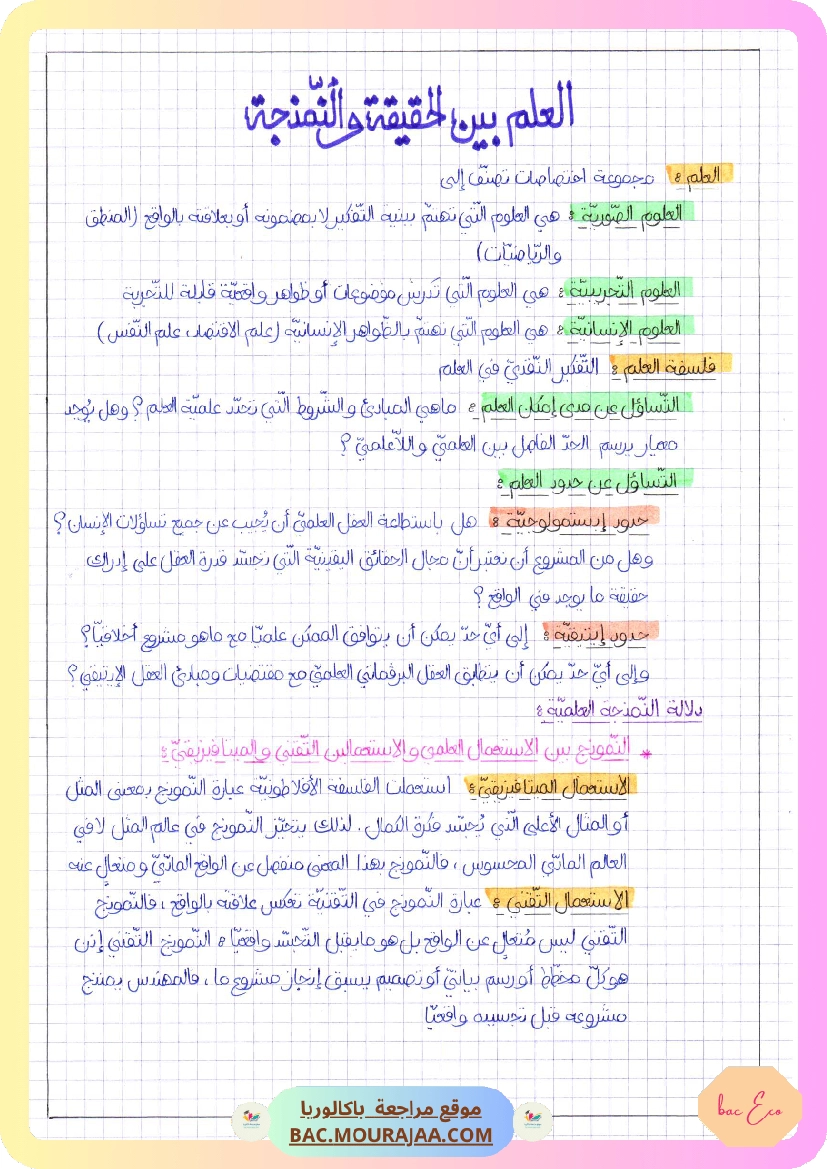 العلم بين الحقيقة والنّمذجة
العلم : مجموعة اختصاصات تصنّف إلى
العلوم الصّوريّة : هي العلوم الّتي تهتمّ ببنية التّفكير لا بمضمونه أو بعلاقته بالواقع (المنطق
والرّياضيّات)
العلوم التّجريبيّة : هي العلوم الّتي تدرس موضوعات أو ظواهر واقعيّة قابلة للتّجربة
العلوم الإنسانيّة : هي العلوم الّتي تهتمّ بالظّواهر الإنسانيّة (علم الاقتصاد، علم النّفس)
فلسفة العلم : التّفكير النّقديّ في العلم
التّساؤل عن مدى إمكان العلم : ماهي المبادئ والشّروط الّتي تحدّد علميّة العلم ؟ وهل يُوجد
معيار يرسم الحدّ الفاصل بين العلميّ واللاّعلميّ ؟
التّساؤل عن حدود العلم :
حدود إبستمولوجيّة : هل باستطاعة العقل العلميّ أن يُجيب عن جميع تساؤلات الإنسان ؟
وهل من المشروع أن نعتبر أنّ مجال الحقائق اليقينيّة الّتي تجسّد قدرة العقل على إدراك
حقيقة ما يوجد في الواقع ؟
حدود إيتيقيّة : إلى أيّ حدّ يمكن أن يتوافق الممكن علميّا مع ماهو مشروع أخلاقيّا؟
وإلى أيّ حدّ يمكن أن يتطابق العقل البرقماتي العلميّ مع مقتضيات ومبادئ العقل الإيتيقي ؟
دلالة النّمذجة العلميّة :
* النّموذج بين الاستعمال العلمي والاستعمالين التّقني والميتافيزيقيّ :
الاستعمال الميتافيزيقيّ : استعملت الفلسفة الأفلاطونيّة عبارة النّموذج بمعنى المثل
أو المثال الأعلى الّتي يُجسّد فكرة الكمال . لذلك يتحيّز النّموذج في عالم المثل لا في
العالم المادّي المحسوس ، فالنّموذج بهذا المعنى منفصل عن الواقع المادّيّ ومتعالٍ عنه
الاستعمال التّقني : عبارة النّموذج في التّقنيّة تعكس علاقته بالواقع ، فالنّموذج
التّقني ليس مُتعالٍ عن الواقع بل هو ما يقبل التّجسّد واقعيّا : النّموذج التّقني إذن
هو كلّ مخطّط أو رسم بيانيّ أو تصميم يسبق إنجاز مشروع ما ، فالمهندس يمنذج
مشروعه قبل تجسيده واقعيّا
موقع مراجعة باكالوريا
BAC.MOURAJAA.COM
bac Eco